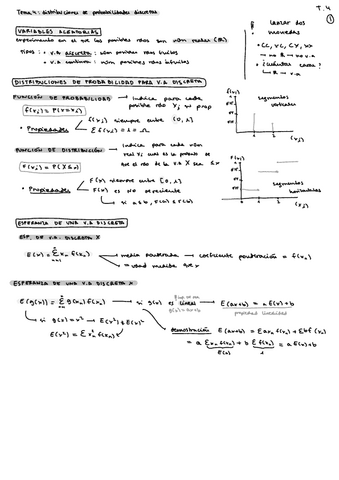 Tema 4: distribuciones de probabilidades discretas
T.4
1
VARIABLES ALEATORIAS
experimento en el que los posibles rdos son núm. reales (ℝ)
tipos: • v.a discreta: núm posibles rdos finitos
• v.a continua: núm posibles rdos infinitos
lanzar dos monedas
• CC, XC, CX, XX
→ no ℝ → no v.a
• ¿cuántas caras?
↳ ℝ → v.a
DISTRIBUCIONES DE PROBABILIDAD PARA V.A DISCRETA
FUNCIÓN DE PROBABILIDAD → Indica para cada posible rdo
f(x_i) = P(X=x_i)
• Propiedades
f(x_i) siempre entre [0,1]
Σf(x_i) = 1 = Ω
f(x_i)
segmentos verticales
(x_i)
FUNCIÓN DE DISTRIBUCIÓN → Indica para cada núm real x_i cual es la probab de que el rdo de la v.a X sea ≤ x
F(x_i) = P(X≤x)
• Propiedades
F(x) siempre entre [0,1]
F(x) es no decreciente
↳ si a≤b, F(a) ≤ F(b)
F(x_i)
segmentos horizontales
(x_i)
ESPERANZA DE UNA V.A DISCRETA
ESP. DE V.A. DISCRETA X
E(x) = Σ x_n f(x_n)
media ponderada → coeficiente ponderación = f(x_n)
→ unidad medida que x
ESPERANZA DE UNA V.A DISCRETA X
E(g(x)) = Σ g(x_n) f(x_n) → si g(x) es lineal → E(ax+b) = aE(x)+b
g(x) = ax+b
propiedad linealidad
↳ si g(x) = x² → E(x²) ≠ E(x)²
E(x²) = Σ x_n² f(x_n)
demostración E(ax+b) = Σax_n f(x_n) + Σb f(x_n)
= a Σx_n f(x_n) + b Σf(x_n) = aE(x)+b
E(x) 1